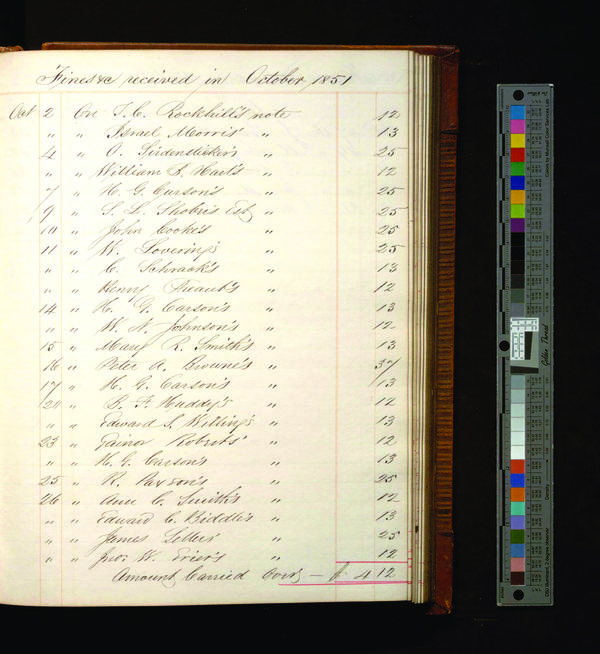 Fines &c received in October 1851
Oct 2 On T. C. Rockhill's note 12
" " Israel Morris' " 13
4 " O. Seidensticker's " 25
" " William B. Hart's " 12
7 " H. G. Curson's " 25
9 " S. L. Shober's Est " 25
10 " John Cooke's " 25
11 " W. Lovering's " 25
" " C. Schrack's " 13
" " Henry " 12
14 " H. G. Carson's " 13
" " W. N. Johnson's " 12
15 " Mary R. Smith's " 13
16 " Peter A. Browne's " 37
17 " H. G. Carson's " 13
20 " B. F. Huddy's " 12
" " Edward S. Willing's " 13
23 " Gainor Roberts' " 12
" " H. G. Carson's " 13
25 " R. Paxson's " 25
26 " Ann C. Smith's " 12
" " Edward C. Biddle's " 13
" " James Sellers' " 25
" " Jno. W. Grier's " 12
Amount Carried Over — $ 4 12